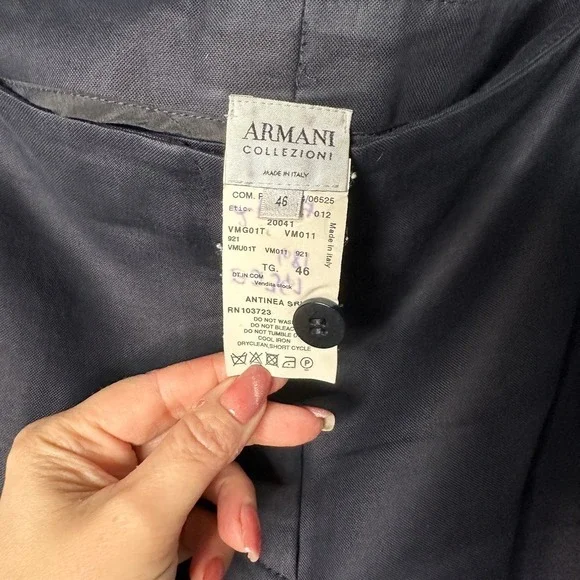 ARMANI
COLLEZIONI
MADE IN ITALY
46
COM. /06525
012
20041
VMG01T VM011
921
VMU01T VM011 921
TG. 46
DT.IN COM
Vendita stock
Made in Italy
ANTINEA
RN103723
DO NOT
DO NOT
DO NOT TUMBLE
COOL IRON
DRYCLEAN,SHORT CYCLE
P